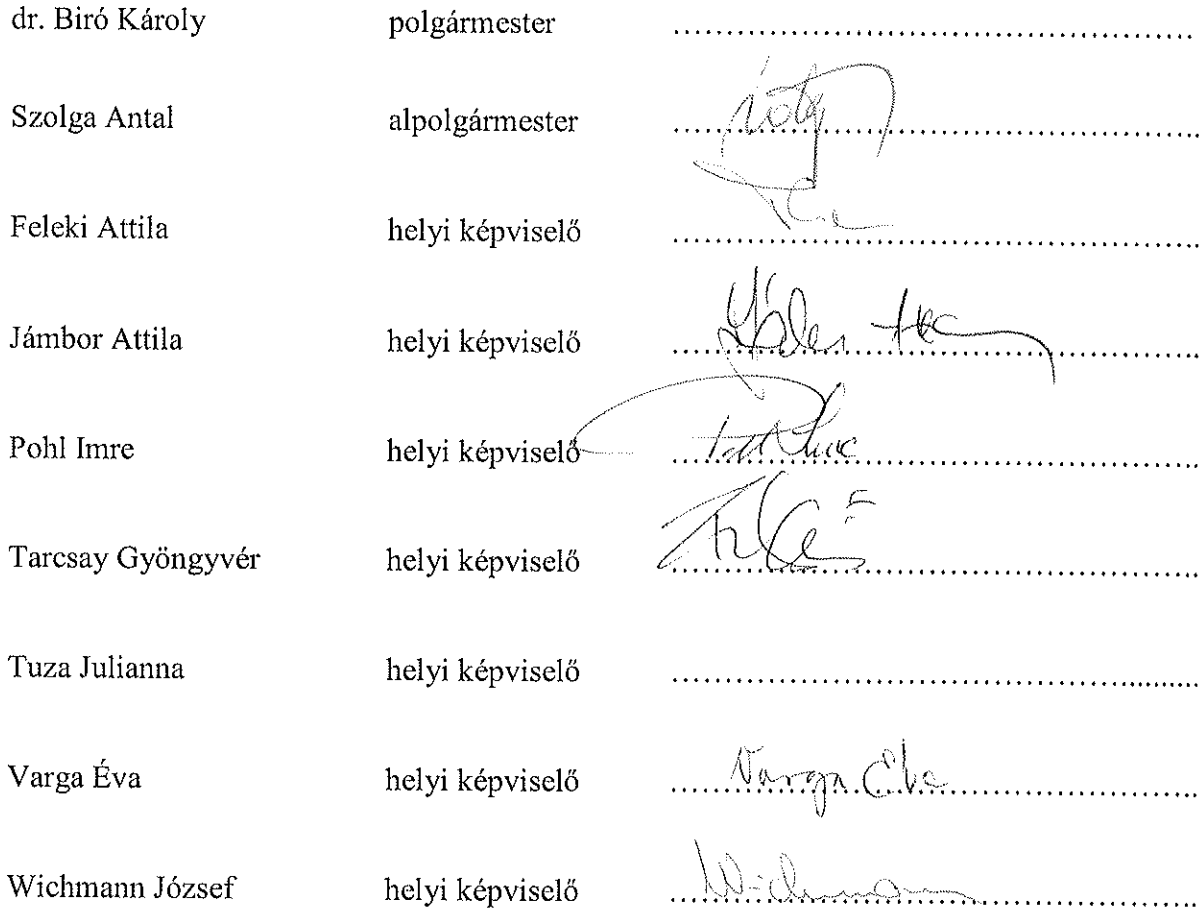 dr. Biró Károly polgármester ........................................................
Szolga Antal alpolgármester ........................................................
Feleki Attila helyi képviselő ........................................................
Jámbor Attila helyi képviselő ........................................................
Pohl Imre helyi képviselő ........................................................
Tarcsay Gyöngyvér helyi képviselő ........................................................
Tuza Julianna helyi képviselő ........................................................
Varga Éva helyi képviselő Varga Éva
Wichmann József helyi képviselő Wichmann